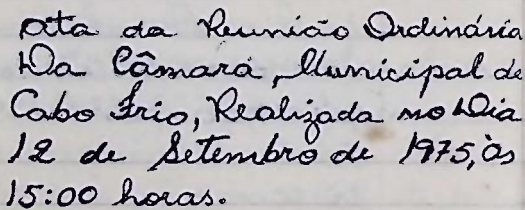 Ata da Reunião Ordinária
Da Câmara, Municipal de
Cabo Frio, Realizada no Dia
12 de Setembro de 1975, às
15:00 horas.